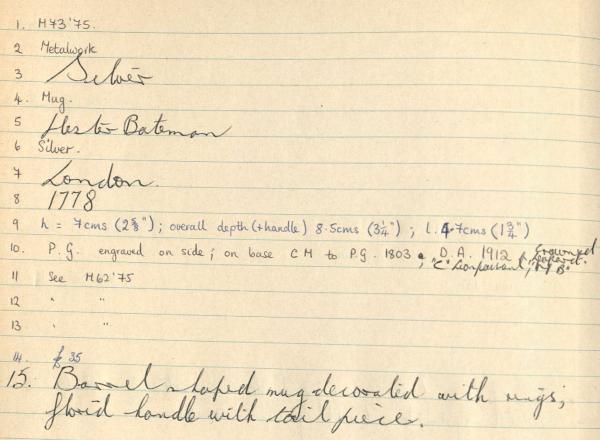 1. M73'75.
2 Metalwork
3 Silver
4. Mug.
5 Hester Bateman
6 Silver.
7 London.
8 1778
9 h = 7cms (2⅝"); overall depth (+handle) 8.5cms (3¼"); l. 4.7cms (1¾")
10. P.G. engraved on side; on base C M to P.G. 1803; D.A. 1912 Crowned Leopard.
"C" Lion passant, "H B"
11 See M62'75
12 " "
13. " "
14. £ 35
15. Barrel shaped mug decorated with rings;
florid handle with tail piece.